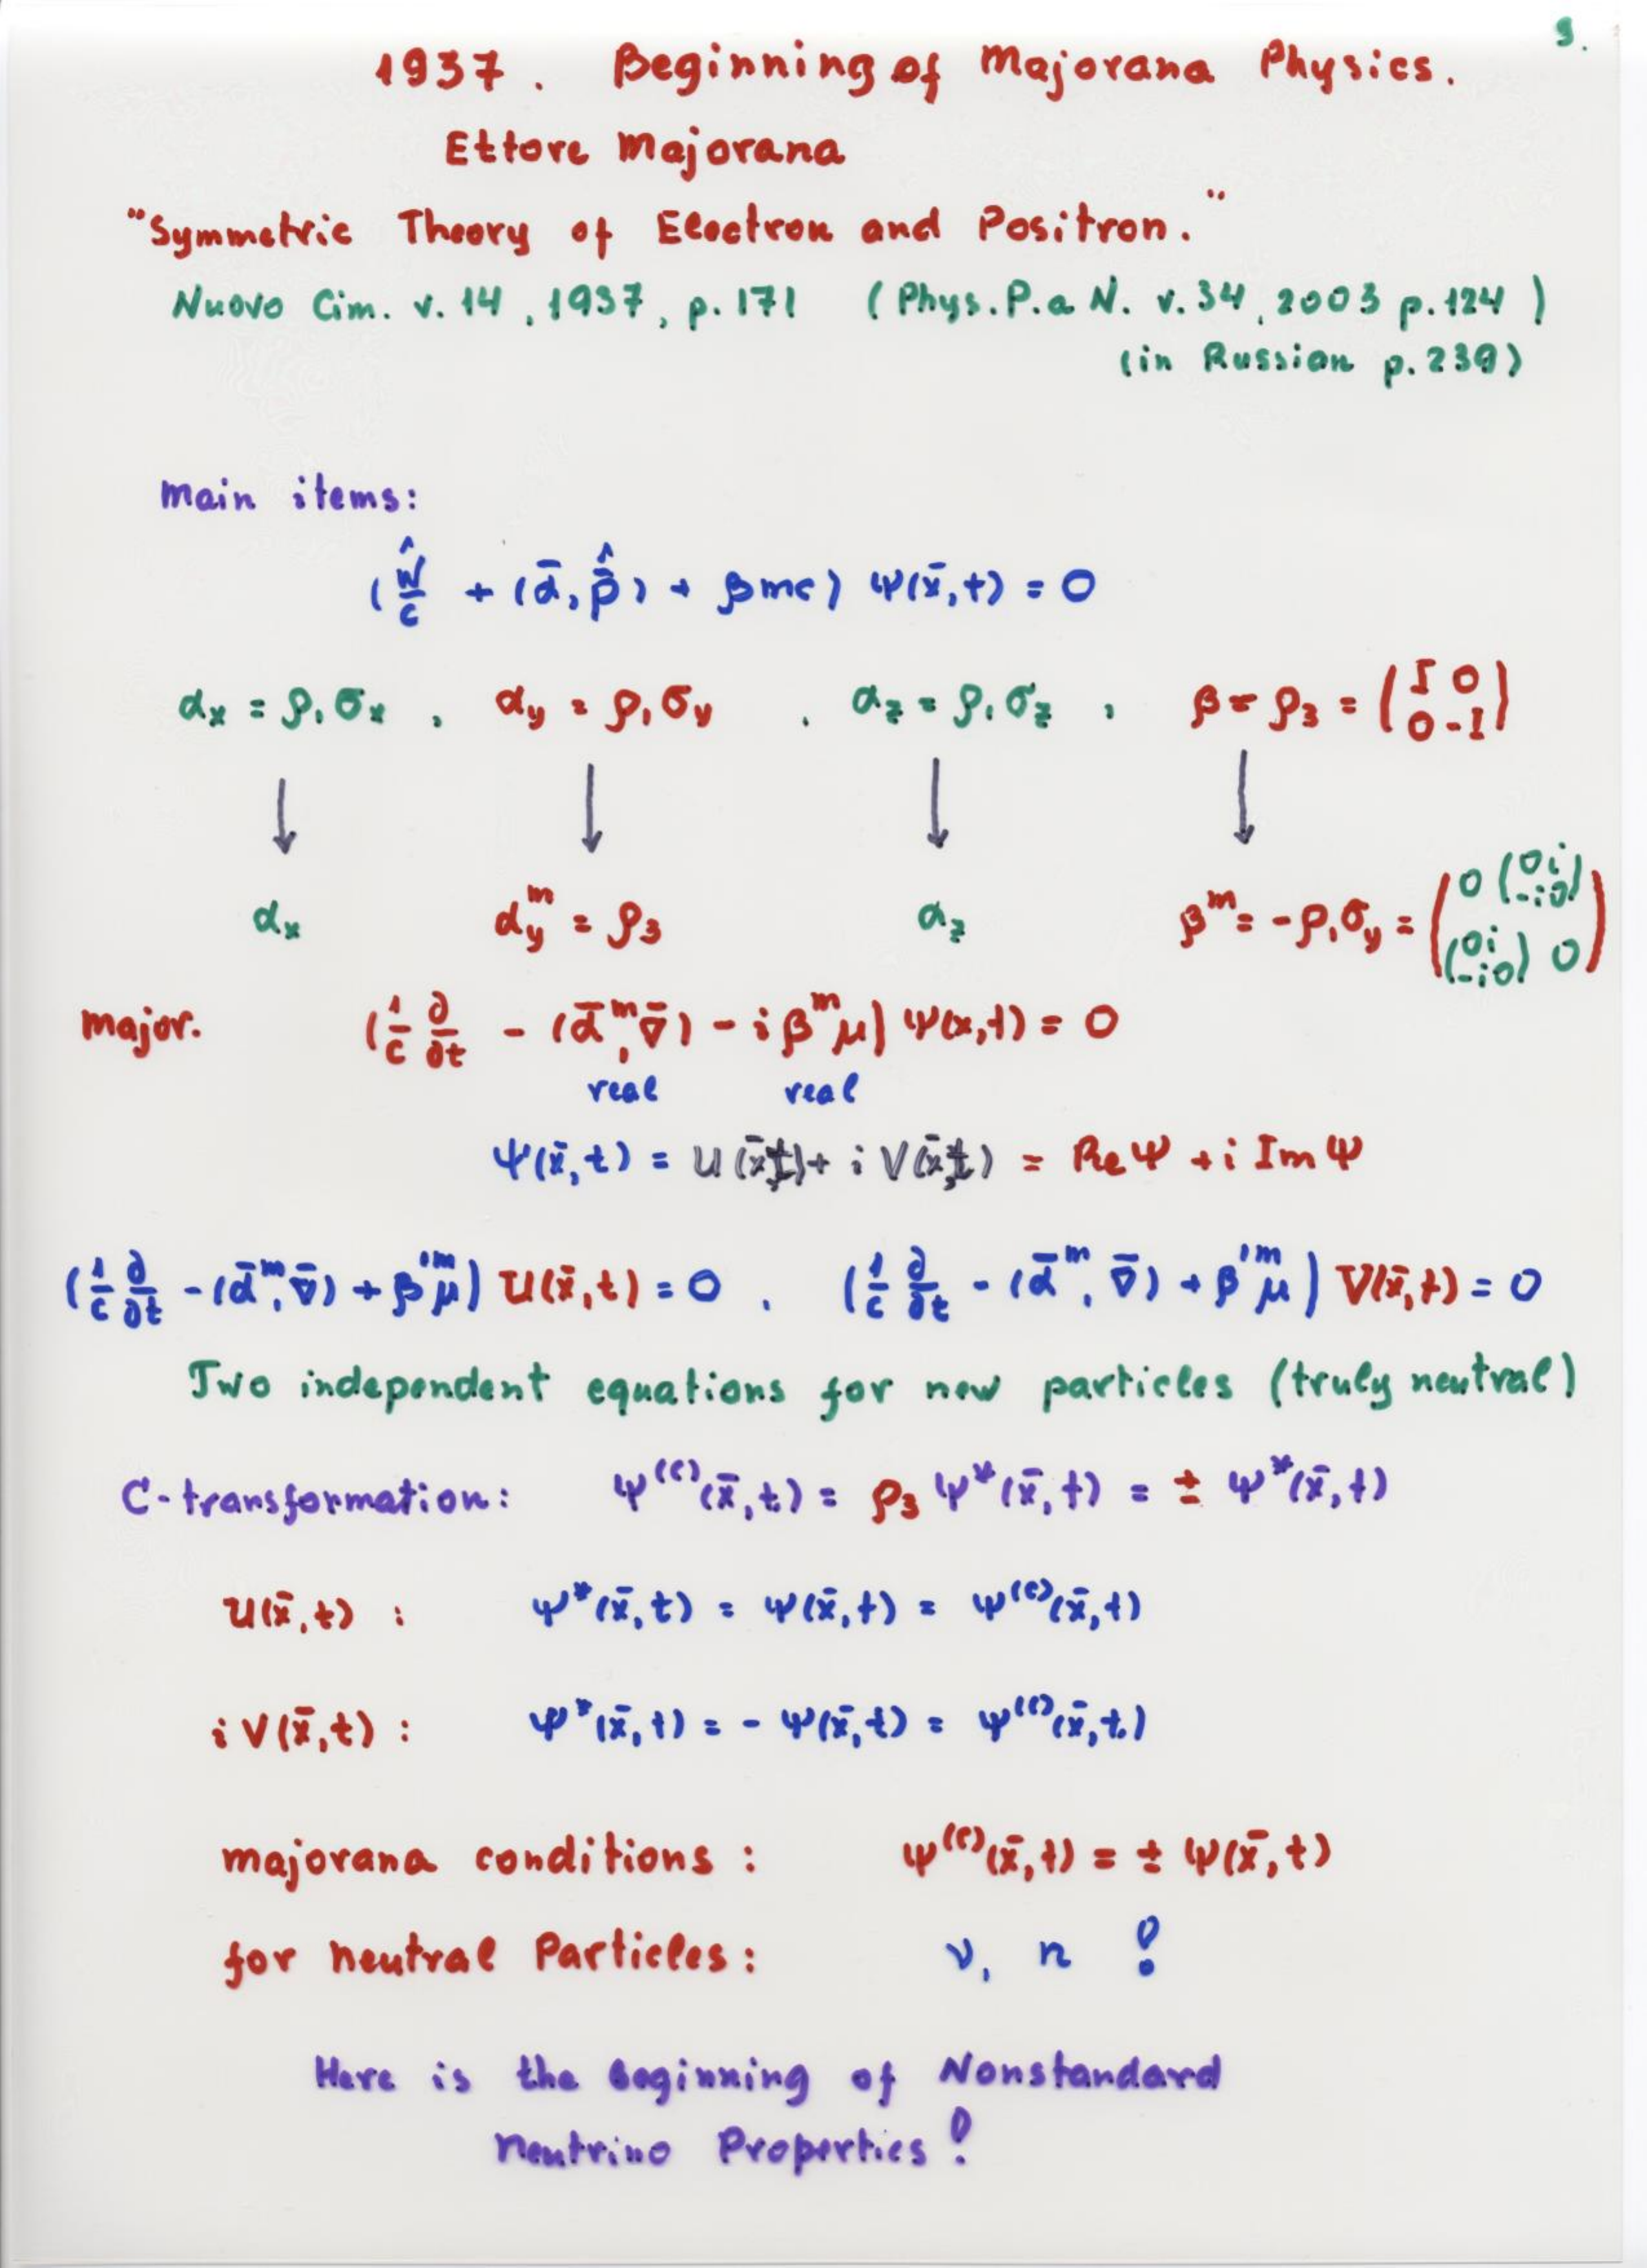 9.
1937. Beginning of Majorana Physics.
Ettore Majorana
"Symmetric Theory of Electron and Positron."
Nuovo Cim. v. 14, 1937, p. 171 (Phys. P. a N. v. 34, 2003 p. 124)
(in Russian p. 239)
main items:
(Ŵ/c + (ᾱ, p̂̄) + βmc) Ψ(x̄,t) = 0
α_x = ρ₁σ_x , α_y = ρ₁σ_y , α_z = ρ₁σ_z , β = ρ₃ = (I 0 / 0 -I)
↓ ↓ ↓ ↓
α_x α_y^m = ρ₃ α_z β^m = -ρ₁σ_y = (0 (0 i / -i 0) / (0 i / -i 0) 0)
major. (1/c ∂/∂t - (ᾱ^m, ∇̄) - iβ^m μ) Ψ(x,t) = 0
real real
Ψ(x̄,t) = U(x̄,t) + i V(x̄,t) = Re Ψ + i Im Ψ
(1/c ∂/∂t - (ᾱ^m, ∇̄) + β'^m μ) U(x̄,t) = 0 , (1/c ∂/∂t - (ᾱ^m, ∇̄) + β'^m μ) V(x̄,t) = 0
Two independent equations for new particles (truly neutral)
C-transformation: Ψ^(c)(x̄,t) = ρ₃ Ψ*(x̄,t) = ± Ψ*(x̄,t)
U(x̄,t) : Ψ*(x̄,t) = Ψ(x̄,t) = Ψ^(c)(x̄,t)
i V(x̄,t) : Ψ*(x̄,t) = - Ψ(x̄,t) = Ψ^(c)(x̄,t)
majorana conditions : Ψ^(c)(x̄,t) = ± Ψ(x̄,t)
for neutral Particles : ν, n !
Here is the Beginning of Nonstandard
Neutrino Properties!